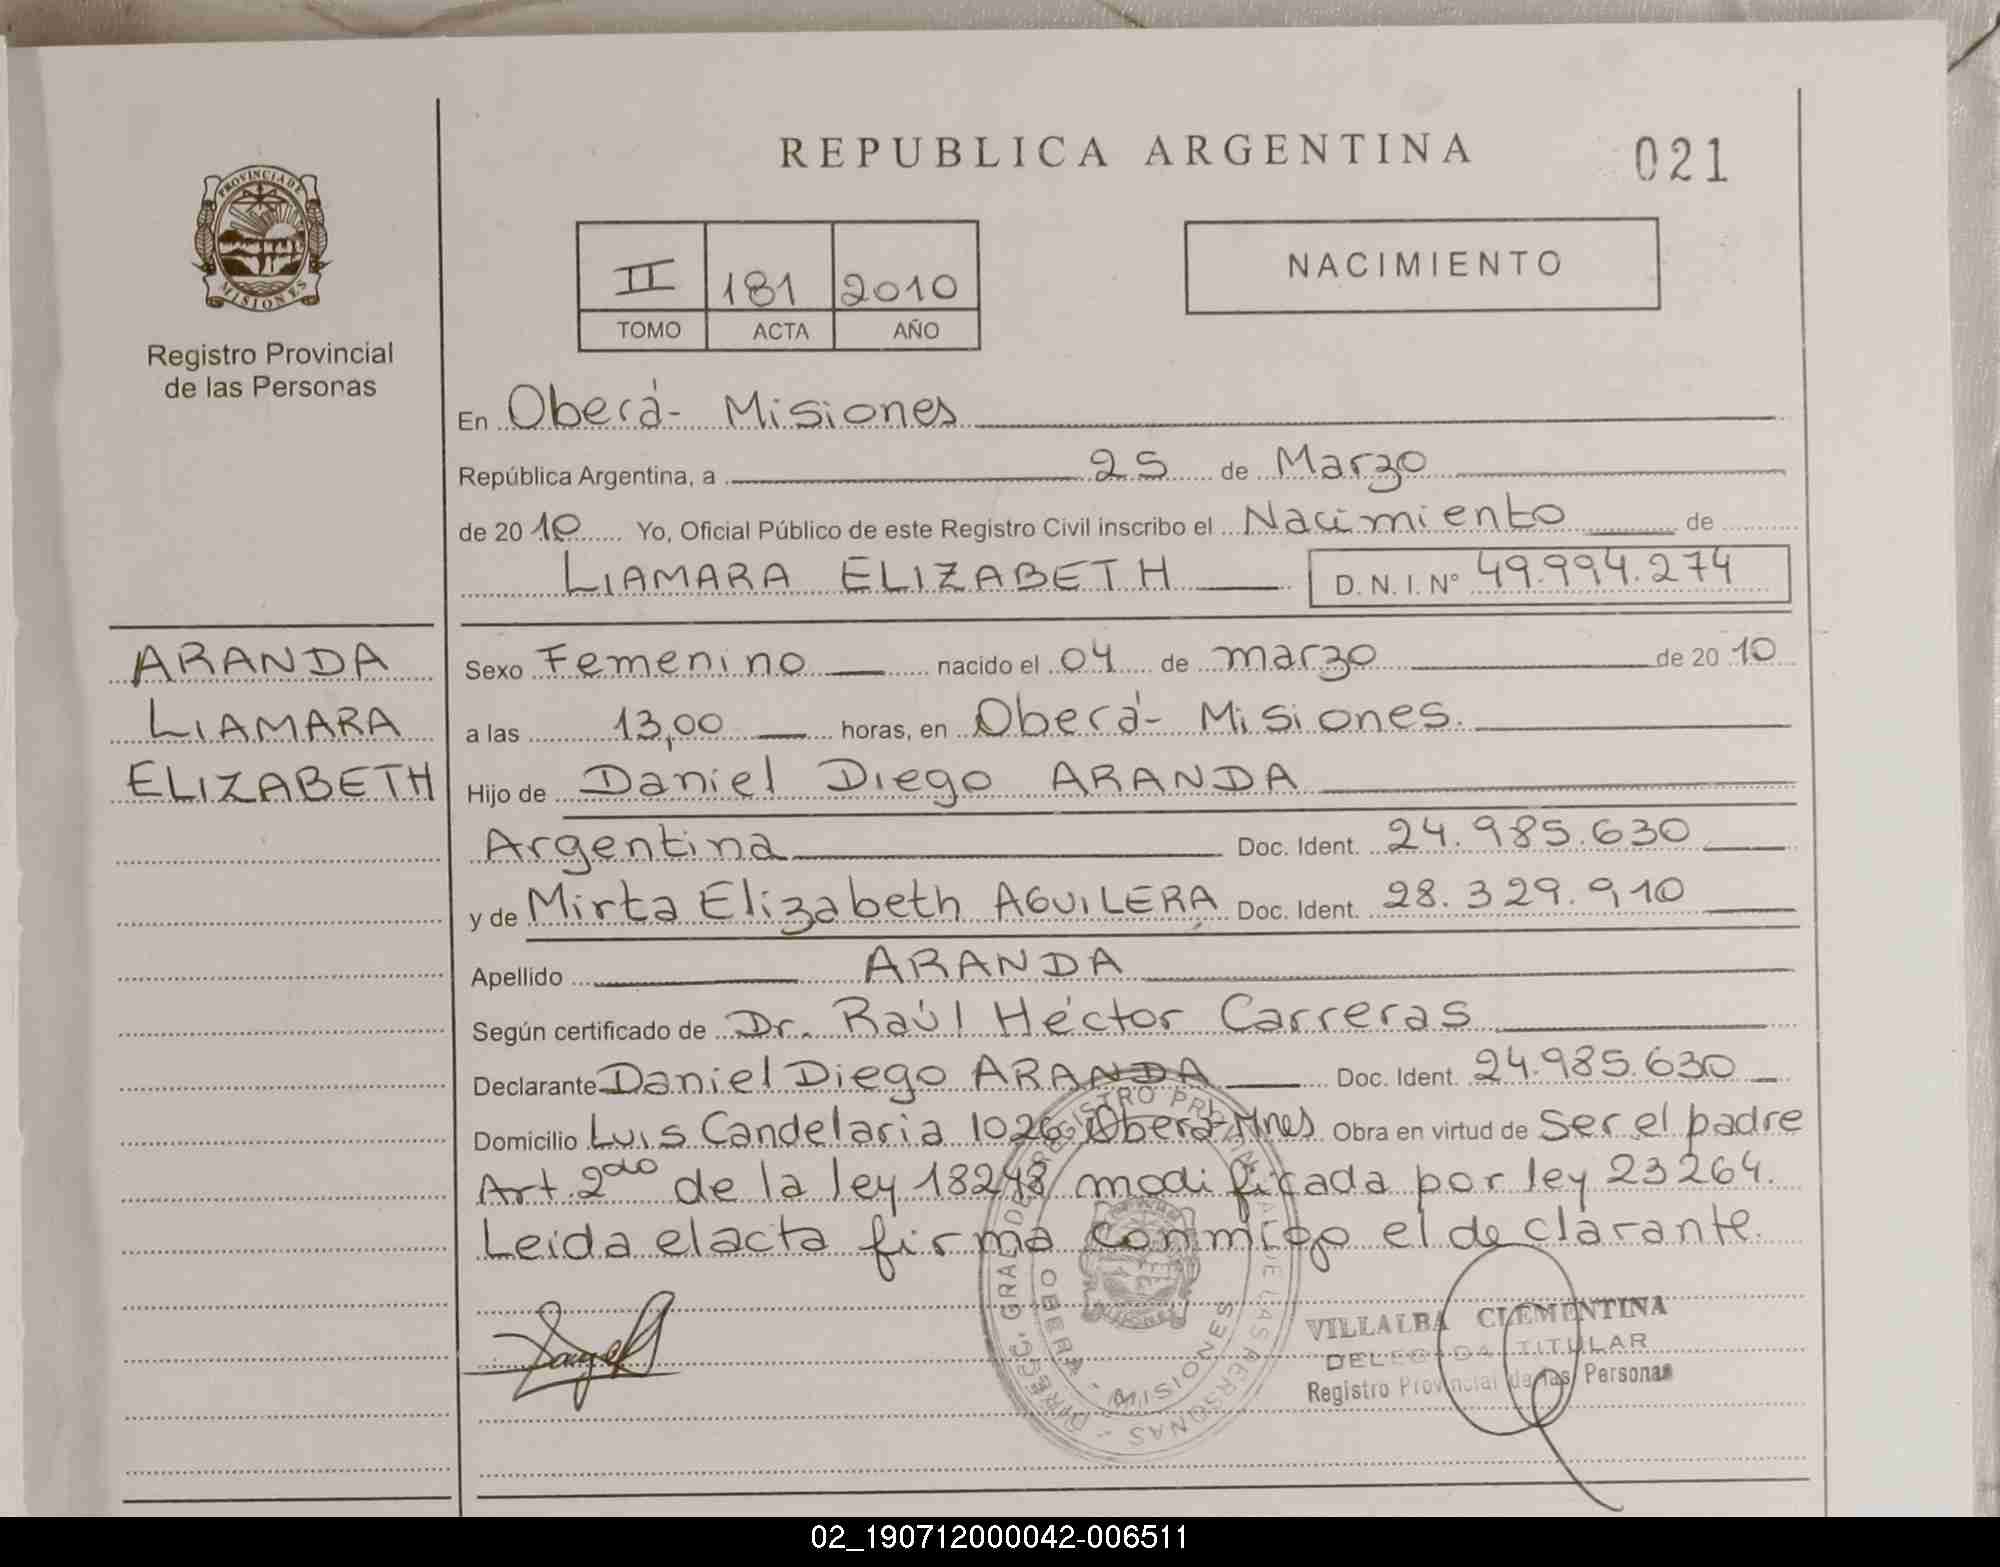 REPUBLICA ARGENTINA
021
PROVINCIA DE
MISIONES
Registro Provincial
de las Personas
II 181 2010
TOMO ACTA AÑO
NACIMIENTO
En Oberá- Misiones
República Argentina, a 25 de Marzo
de 2010 Yo, Oficial Público de este Registro Civil inscribo el Nacimiento de
LIAMARA ELIZABETH D.N.I. Nº 49.994.274
ARANDA
LIAMARA
ELIZABETH
Sexo Femenino nacido el 04 de marzo de 2010
a las 13,00 horas, en Oberá- Misiones.
Hijo de Daniel Diego ARANDA
Argentina Doc. Ident. 24.985.630
y de Mirta Elizabeth AGUILERA Doc. Ident. 28.329.910
Apellido ARANDA
Según certificado de Dr. Raúl Héctor Carreras
Declarante Daniel Diego ARANDA Doc. Ident. 24.985.630
Domicilio Luis Candelaria 1026 Oberá-Mnes Obra en virtud de Ser el padre
Art 2do de la ley 18248 modificada por ley 23264.
Leida el acta firma conmigo el declarante.
DIRECC. GRAL. DE REGISTRO PROVINCIAL DE LAS PERSONAS
OBERA - MISIONES
VILLALBA CLEMENTINA
DELEGADA TITULAR
Registro Provincial de las Personas
02_190712000042-006511